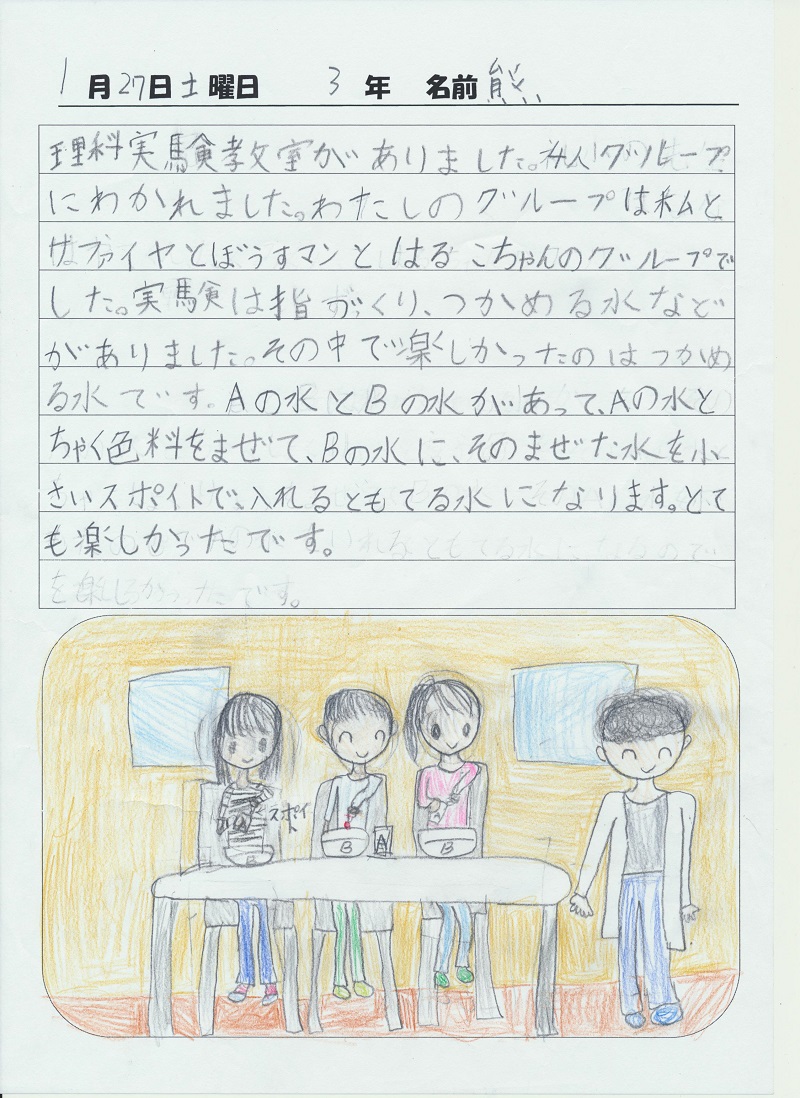 1月27日土曜日 3年 名前 熊
理科実験教室がありました。4人グループ
にわかれました。わたしのグループは私と
サファイヤとぼうずマンとはるこちゃんのグループで
した。実験は指づくり、つかめる水など
がありました。その中で楽しかったのはつかめ
る水です。Aの水とBの水があって、Aの水と
ちゃく色料をまぜて、Bの水に、そのまぜた水を小
さいスポイトで、入れるともてる水になります。とて
も楽しかったです。いれるともてる水になるので
を楽しかったです。
スポイト
B B A B